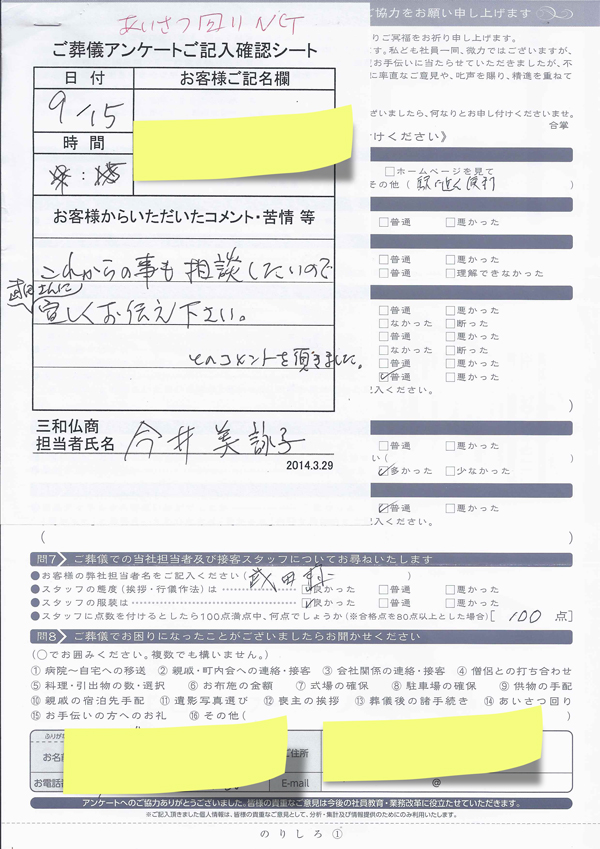 あいさつ回りNCT
ご葬儀アンケートご記入確認シート
日付
お客様ご記名欄
9/15
時間
:
お客様からいただいたコメント・苦情 等
これからの事も相談したいので
さんに
宜しくお伝え下さい。
とのコメントを頂きました。
三和仏商
担当者氏名 今井美詠子
2014.3.29
ご協力をお願い申し上げます
りご冥福をお祈り申し上げます。
す。私ども社員一同、微力ではございますが、
お手伝いに当たらせていただきましたが、不
に率直なご意見や、叱声を賜り、精進を重ねて
ざいましたら、何なりとお申し付けくださいませ。
合掌
けください》
□ホームページを見て
その他(
□普通 □悪かった
□普通 □悪かった
□普通 □理解できなかった
□普通 □悪かった
□なかった □断った
□普通 □悪かった
□なかった □断った
□普通 □悪かった
☑普通 □悪かった
記入ください。
)
□普通 □悪かった
い(
☑多かった □少なかった
☑普通 □悪かった
入ください。
( )
問7 ご葬儀での当社担当者及び接客スタッフについてお尋ねいたします
●お客様の弊社担当者名をご記入ください( )
●スタッフの態度(挨拶・行儀作法)は ☑良かった □普通 □悪かった
●スタッフの服装は ☑良かった □普通 □悪かった
●スタッフに点数を付けるとしたら100点満点中、何点でしょうか(※合格点を80点以上とした場合)[ 100 点]
問8 ご葬儀でお困りになったことがございましたらお聞かせください
(○でお囲みください。複数でも構いません。)
①病院~自宅への移送 ②親戚・町内会への連絡・接客 ③会社関係の連絡・接客 ④僧侶との打ち合わせ
⑤料理・引出物の数・選択 ⑥お布施の金額 ⑦式場の確保 ⑧駐車場の確保 ⑨供物の手配
⑩親戚の宿泊先手配 ⑪遺影写真選び ⑫喪主の挨拶 ⑬葬儀後の諸手続き ⑭あいさつ回り
⑮お手伝いの方へのお礼 ⑯その他( )
ふりがな
お名前
ご住所
お電話番
E-mail @
アンケートへのご協力ありがとうございました。皆様の貴重なご意見は今後の社員教育・業務改革に役立たせていただきます。
※ご記入頂きました個人情報は、皆様の貴重なご意見として、分析・集計及び情報提供のためにのみ利用いたします。
のりしろ①